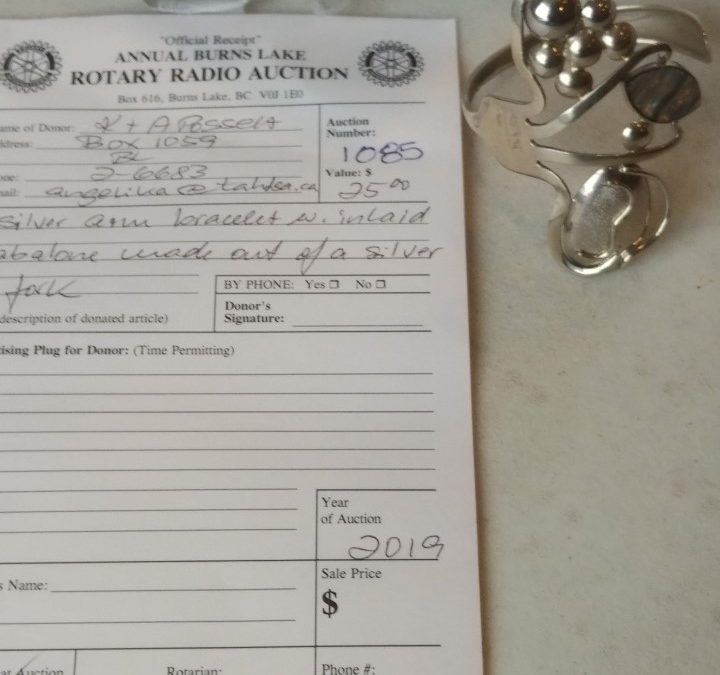 "Official Receipt"
ANNUAL BURNS LAKE
ROTARY RADIO AUCTION
Box 616, Burns Lake, BC V0J 1E0
ame of Donor: K + A Posselt
dress: Box 1059
BL
one: 2-6683
ail: angelika@tahtsa.ca
Auction
Number:
1085
Value: $
25.00
silver arm bracelet w. inlaid
abalone made out of a silver
fork
description of donated article)
BY PHONE: Yes No
Donor's
Signature:
ising Plug for Donor: (Time Permitting)
Year
of Auction
2019
s Name:
Sale Price
$
at Auction
Rotarian:
Phone #: